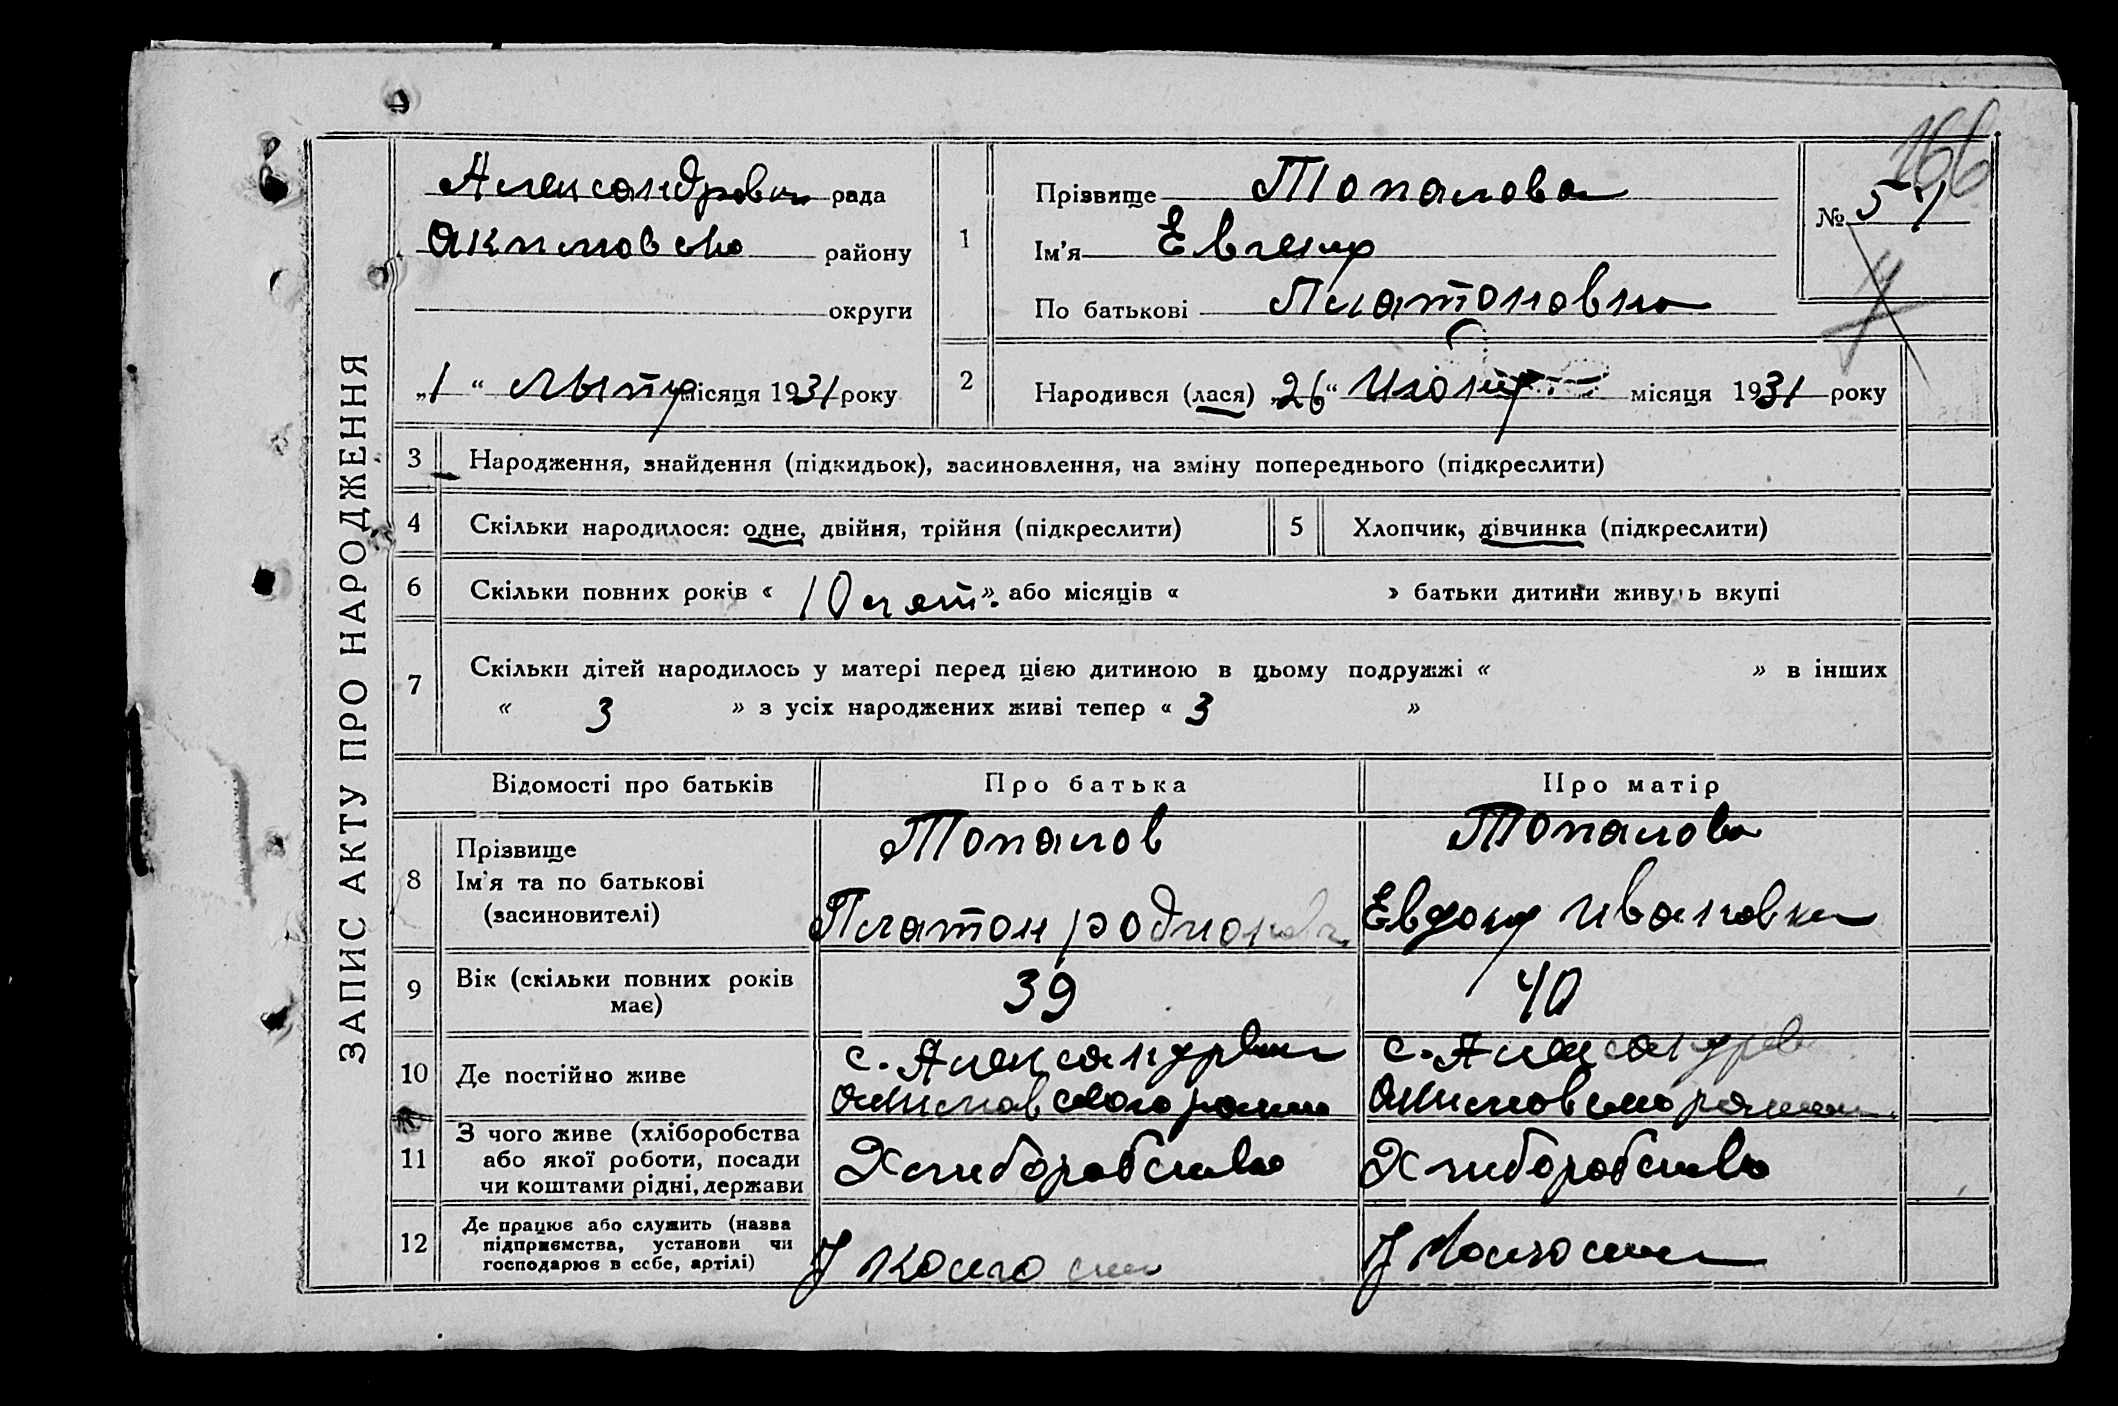 ЗАПИС АКТУ ПРО НАРОДЖЕННЯ
166
Александровка рада
Акимовсько району
округи
„1“ Люту місяця 1931 року
1
Прізвище Топалова
Ім'я Евгения
По батькові Платоновна
№ 57
2
Народився (лася) „26“ Июля місяця 1931 року
3 Народження, знайдення (підкидьок), засиновлення, на зміну попереднього (підкреслити)
4 Скільки народилося: одне, двійня, трійня (підкреслити)
5 Хлопчик, дівчинка (підкреслити)
6 Скільки повних років « 10 лет ». або місяців « » батьки дитини живуть вкупі
7 Скільки дітей народилось у матері перед цією дитиною в цьому подружжі « » в інших
« 3 » з усіх народжених живі тепер « 3 »
Відомості про батьків
Про батька
Про матір
8 Прізвище
Ім'я та по батькові
(засиновителі)
Топалов
Платон родионов
Топалова
Евдоки Ивановна
9 Вік (скільки повних років
має)
39
40
10 Де постійно живе
с. Александровка
Акимовского району
с. Александров
Акимовсько району
11 З чого живе (хліборобства
або якої роботи, посади
чи коштами рідні, держави
Хлиборобство
Хлиборобство
12 Де працює або служить (назва
підприємства, установи чи
господарює в себе, артілі)
У колгоспи
У колгоспи